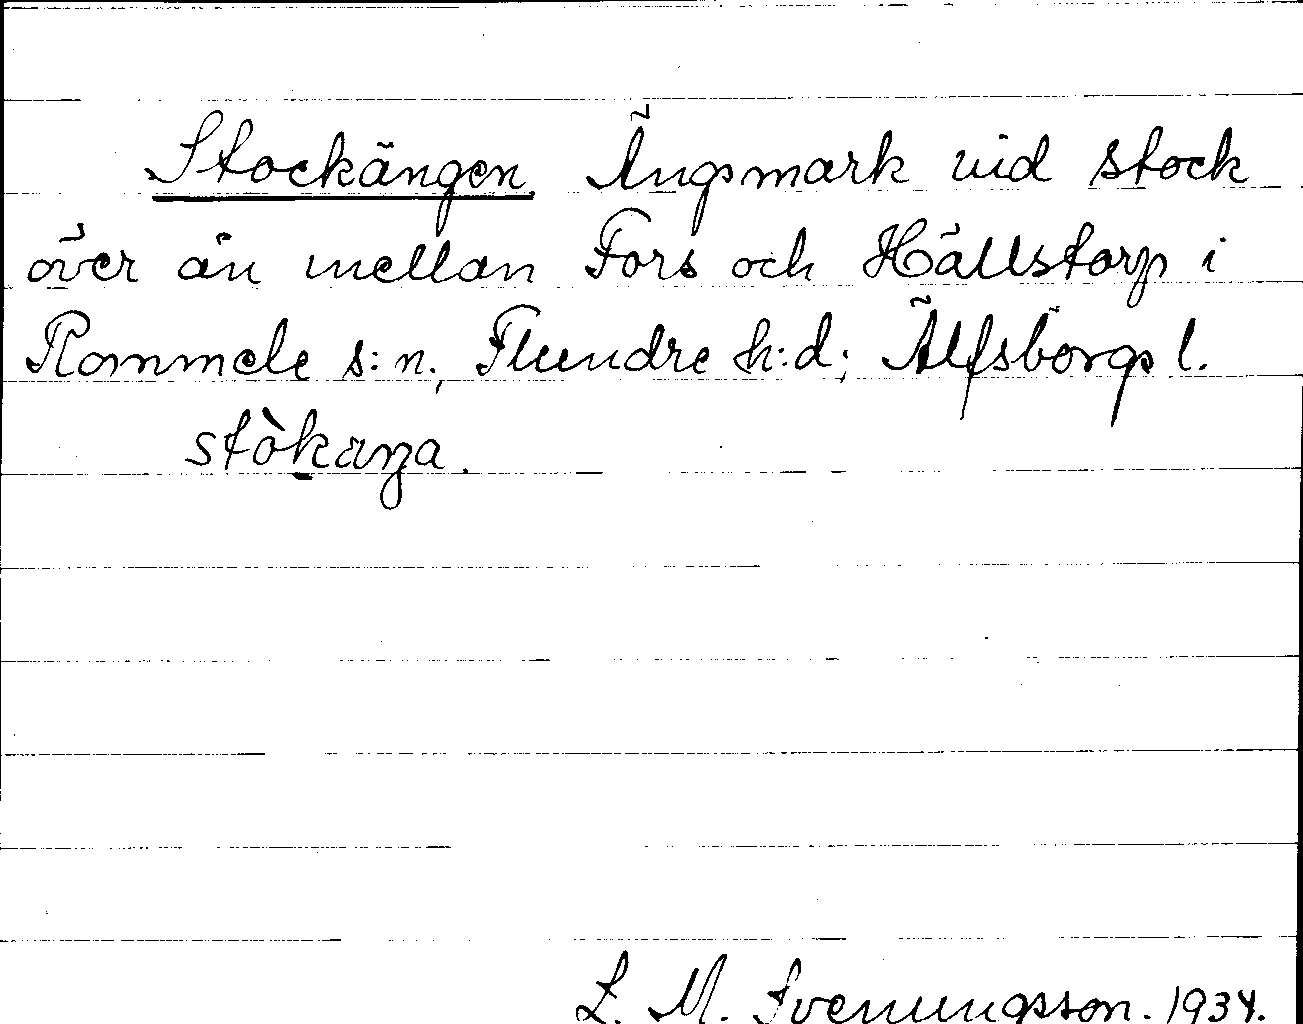 Stockängen. Ängsmark vid stock
över ån mellan Fors och Hällstorp i
Rommele s:n., Flundre h:d; Älfsborgs l.
stòkaŋa.
L. M. Svenungsson. 1934.